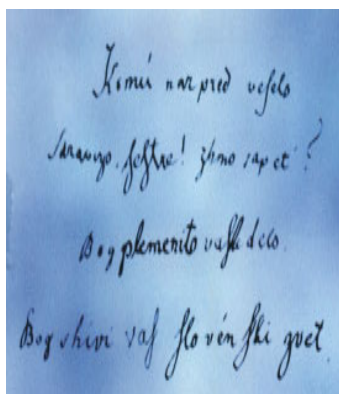 Komú narpred veſelo
sdravizo, ſeſtre! zhmo sapet'?
Bog plemenito vaſhe delo.
Bog shivi vaſ ſlovénſki zvet